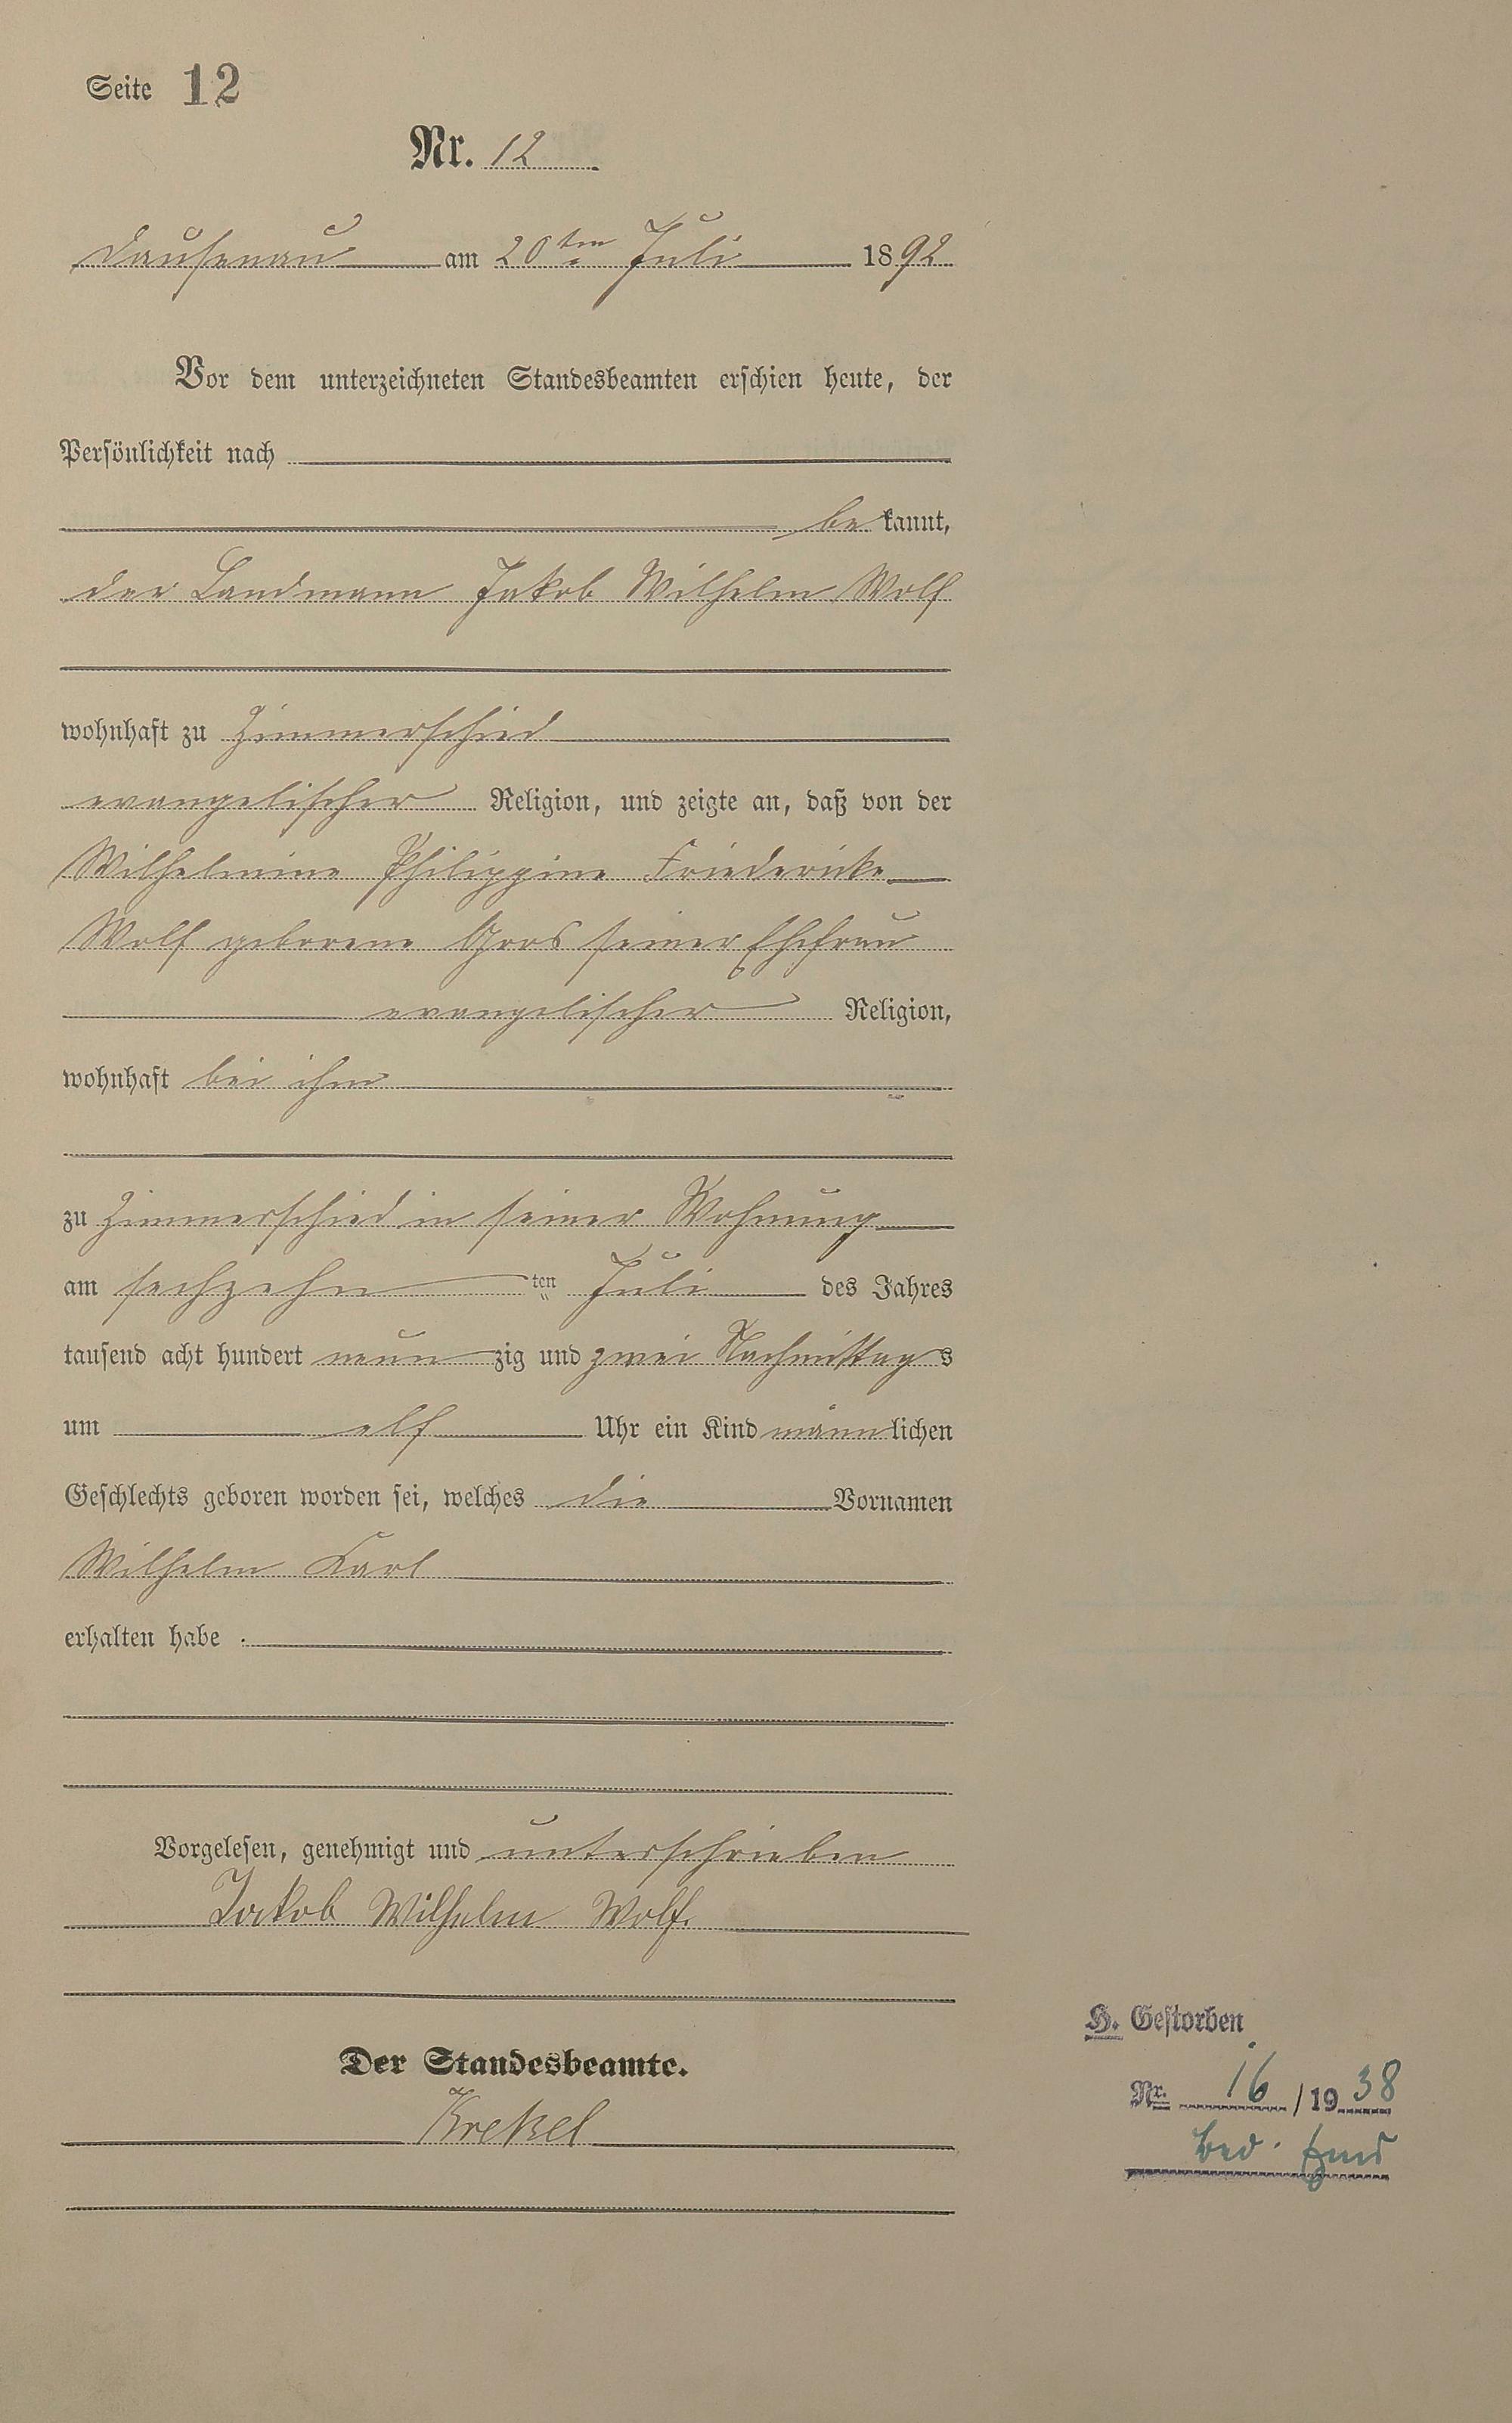 Seite 12
Nr. 12
Dausenau am 20ten Juli 1892
Vor dem unterzeichneten Standesbeamten erschien heute, der
Persönlichkeit nach
be kannt,
der Landmann Jakob Wilhelm Wolf
wohnhaft zu Zimmerschied
evangelischer Religion, und zeigte an, daß von der
Wilhelmine Philippine Friedericke
Wolf geborene Gros seiner Ehefrau
evangelischer Religion,
wohnhaft bei ihm
zu Zimmerschied in seiner Wohnung
am sechzehn ten Juli des Jahres
tausend acht hundert neun zig und zwei Nachmittags
um elf Uhr ein Kind männlichen
Geschlechts geboren worden sei, welches die Vornamen
Wilhelm Karl
erhalten habe .
Vorgelesen, genehmigt und unterschrieben
Jakob Wilhelm Wolf.
Der Standesbeamte.
Krekel
H. Gestorben
Nr. 16 /19 38
Bad Ems